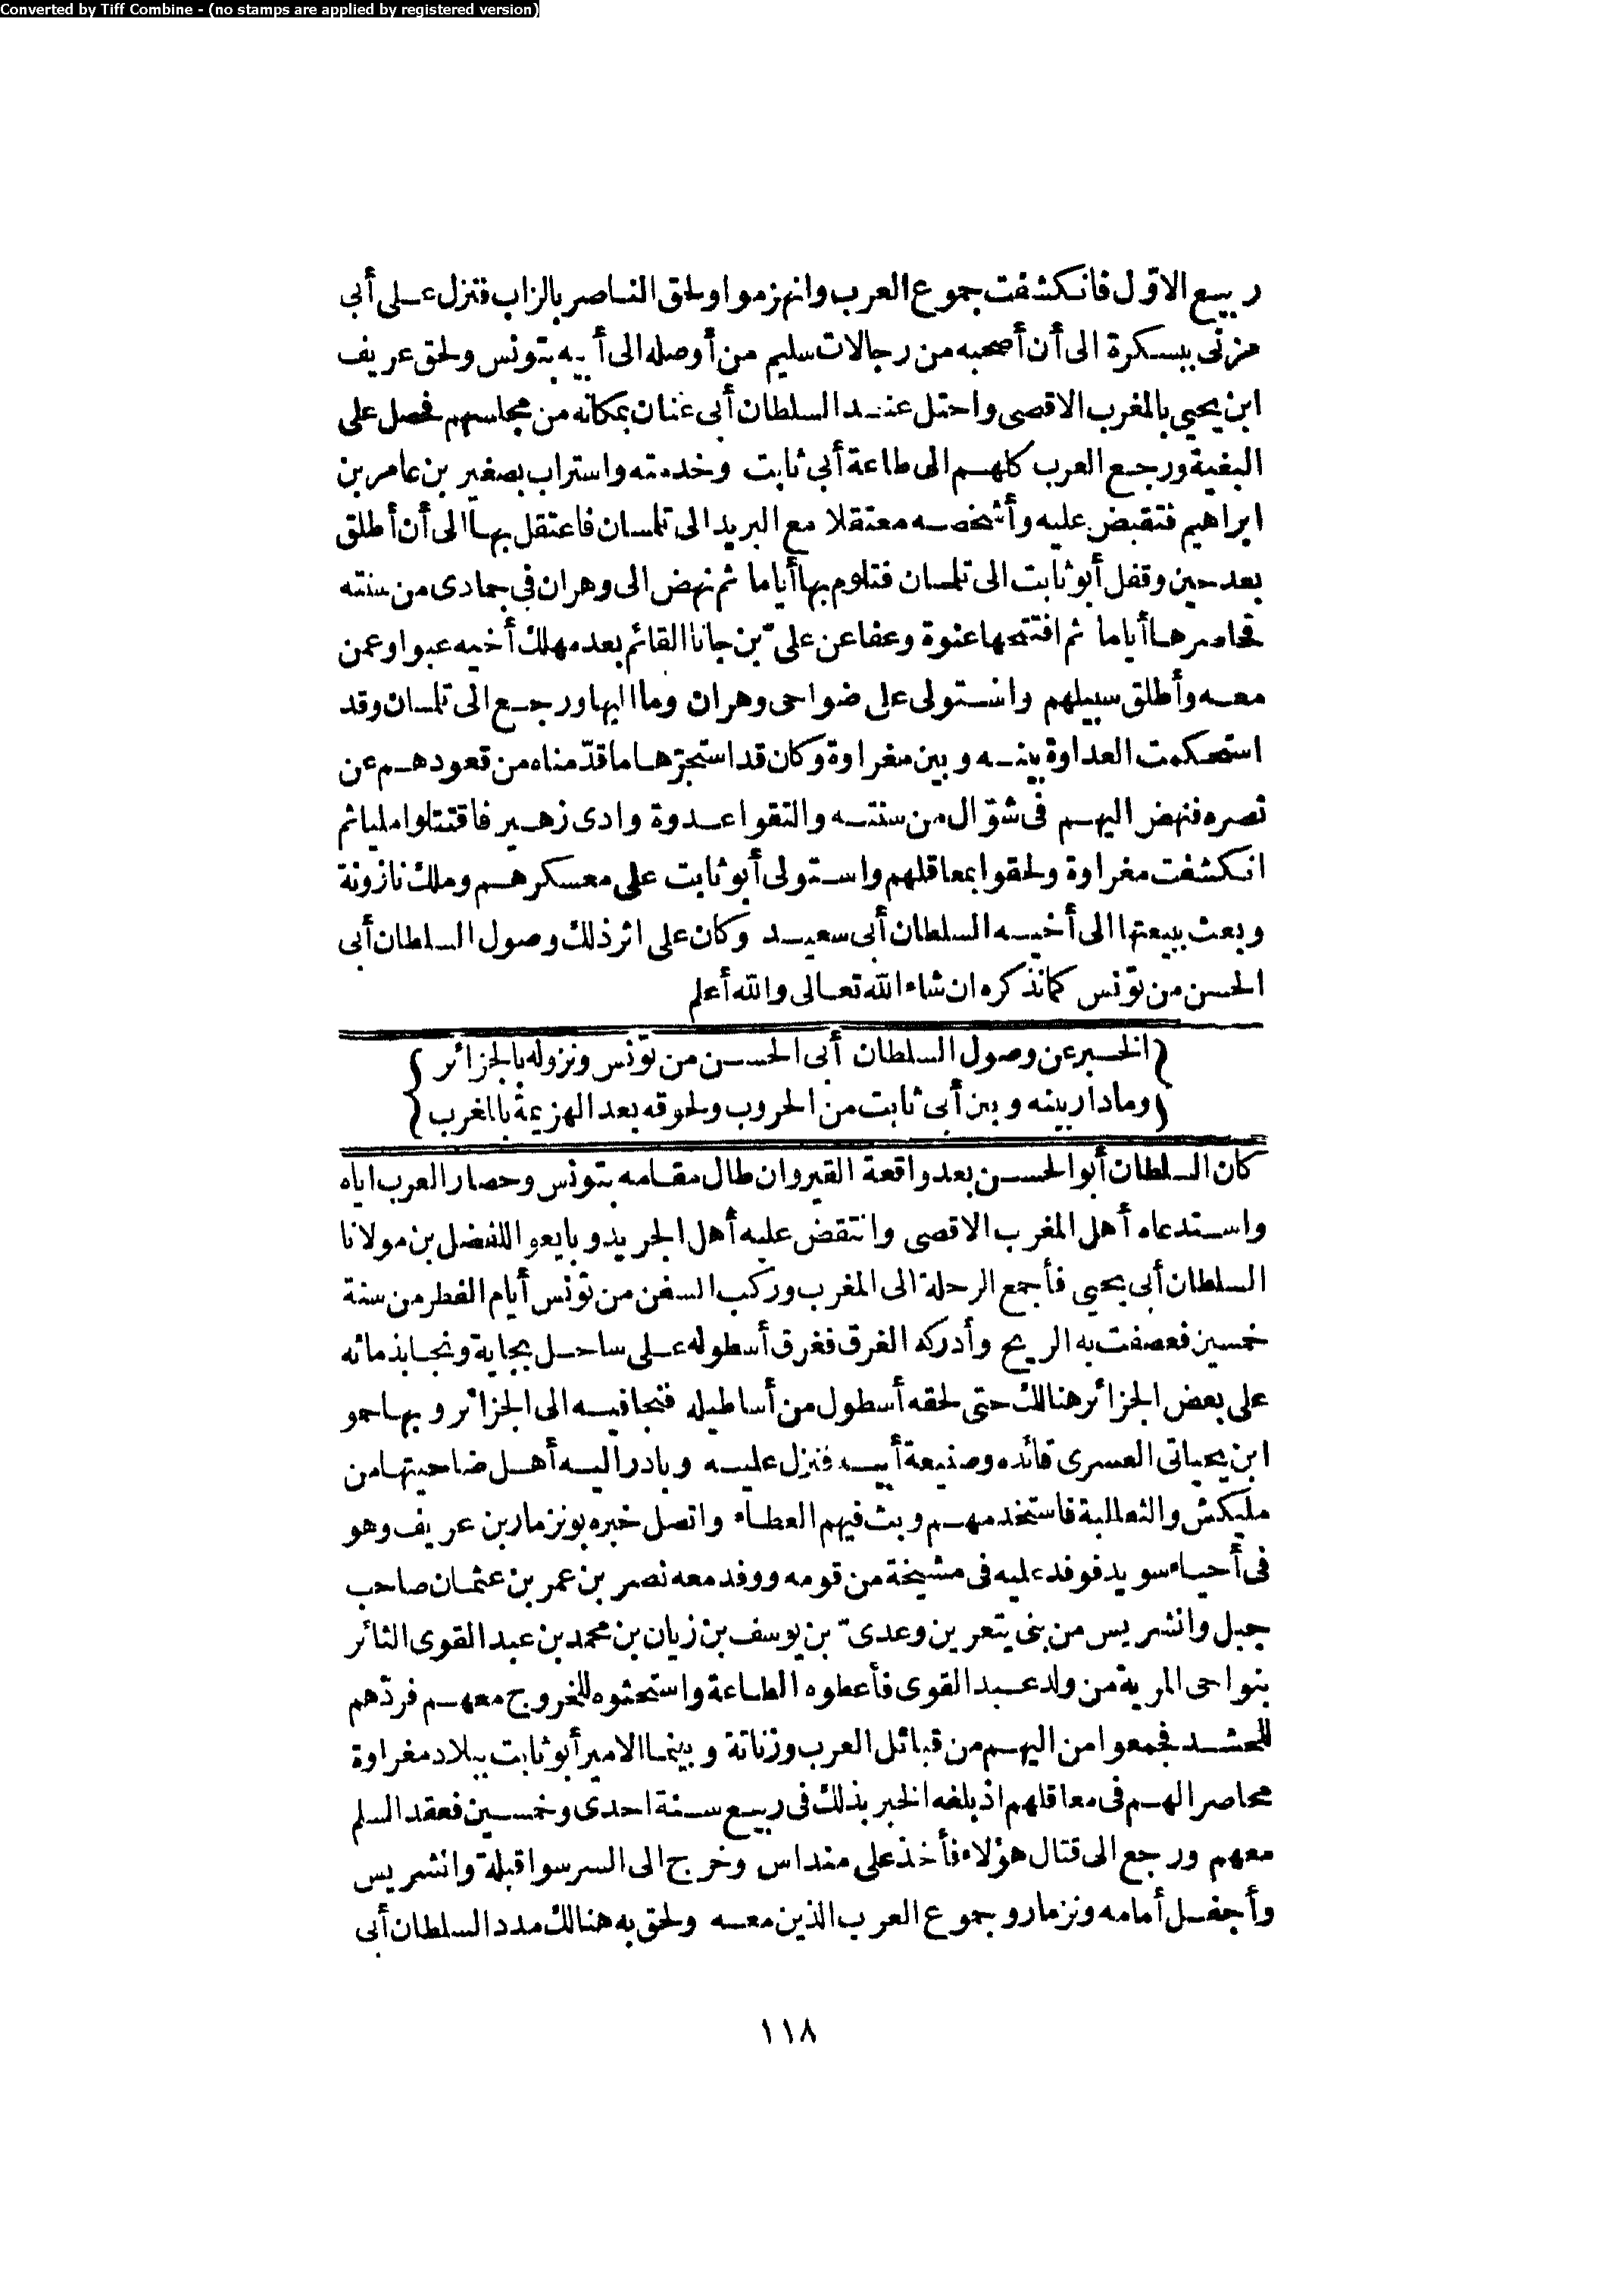 Converted by Tiff Combine - (no stamps are applied by registered version)
ربيع الاوّل فانكشفت جموع العرب وانهزموا ولحق الناصر بالزاب فنزل على أبى
مزنى ببسكرة الى أن أصحبه من رجالات سليم من أوصله الى أبيه بتونس ولحق عريف
ابن يحيى بالمغرب الاقصى واحتل عند السلطان أبى عنان بمكانه من مجالسهم فحصل على
البغية ورجع العرب كلهم الى طاعة أبى ثابت وخدمته واستراب بصغير بن عامر بن
ابراهيم فتقبض عليه وأشخصه معتقلا مع البريد الى تلمسان فاعتقل بها الى أن أطلق
بعد حين وقفل أبو ثابت الى تلمسان فتلوم بها أياما ثم نهض الى وهران فى جمادى من سنته
فحاصرها أياما ثم افتتحها عنوة وعفا عن علىّ بن جانا القائم بعد مهلك أخيه عبو وعمن
معه وأطلق سبيلهم واستولى على ضواحى وهران وما اليها ورجع الى تلمسان وقد
استحكمت العداوة بينه وبين مغراوة وكان قد استجرّها ما قدّمناه من قعودهم عن
نصره فنهض اليهم فى شوّال من سنته والتقوا عدوة وادى زهير فاقتتلوا مليا ثم
انكشفت مغراوة ولحقوا بمعاقلهم واستولى أبو ثابت على معسكرهم وملك نازونة
وبعث ببيعتها الى أخيه السلطان أبى سعيد وكان على اثر ذلك وصول السلطان أبى
الحسن من تونس كما نذكره ان شاء الله تعالى والله أعلم
{الخبر عن وصول السلطان أبى الحسن من تونس ونزوله بالجزائر}
{وما دار بينه وبين أبى ثابت من الحروب ولحوقه بعد الهزيمة بالمغرب}
كان السلطان أبو الحسن بعد واقعة القيروان طال مقامه بتونس وحصار العرب اياه
واستدعاه أهل المغرب الاقصى وانتقض عليه أهل الجريد وبايعوا للفضل بن مولانا
السلطان أبى يحيى فأجمع الرحلة الى المغرب وركب السفن من تونس أيام الفطر من سنة
خمسين فعصفت به الريح وأدركه الغرق فغرق أسطوله على ساحل بجاية ونجا بذمائه
على بعض الجزائر هنالك حتى لحقه أسطول من أساطيله فنجا فيه الى الجزائر وبها حمو
ابن يحياتى العسرى قائده وصنيعة أبيه فنزل عليه وبادر اليه أهل ضاحيتها من
مليكش والثعالبة فاستخدمهم وبث فيهم العطاء واتصل خبره بونزمار بن عريف وهو
فى أحياء سويد فوفد عليه فى مشيخة من قومه ووفد معه نصر بن عمر بن عثمان صاحب
جبل وانشريس من بنى يتغرين وعدىّ بن يوسف بن زيان بن محمد بن عبد القوى الثائر
بنواحى المرية من ولد عبد القوى فأعطوه الطاعة واستحثوه للخروج معهم فردّهم
للحشد فجمعوا من اليهم من قبائل العرب وزناتة وبينما الامير أبو ثابت ببلاد مغراوة
محاصرا لهم فى معاقلهم اذ بلغه الخبر بذلك فى ربيع سنة احدى وخمسين فعقد السلم
معهم ورجع الى قتال هؤلاء فأخذ على منداس وخرج الى السرسو قبلة وانشريس
وأجفل أمامه ونزمار وجموع العرب الذين معه ولحق به هنالك مدد السلطان أبى
١١٨